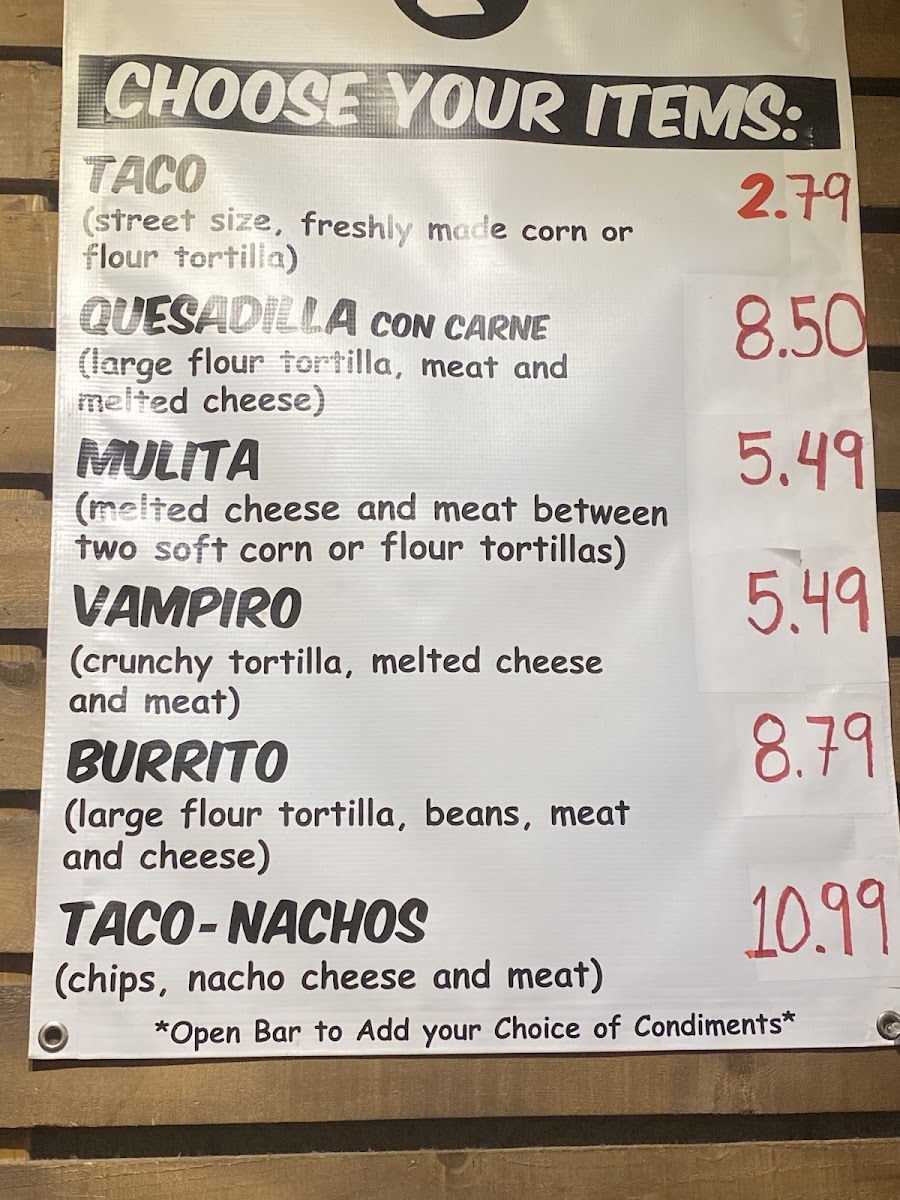 CHOOSE YOUR ITEMS:
TACO 2.79
(street size, freshly made corn or
flour tortilla)
QUESADILLA CON CARNE 8.50
(large flour tortilla, meat and
melted cheese)
MULITA 5.49
(melted cheese and meat between
two soft corn or flour tortillas)
VAMPIRO 5.49
(crunchy tortilla, melted cheese
and meat)
BURRITO 8.79
(large flour tortilla, beans, meat
and cheese)
TACO-NACHOS 10.99
(chips, nacho cheese and meat)
*Open Bar to Add your Choice of Condiments*